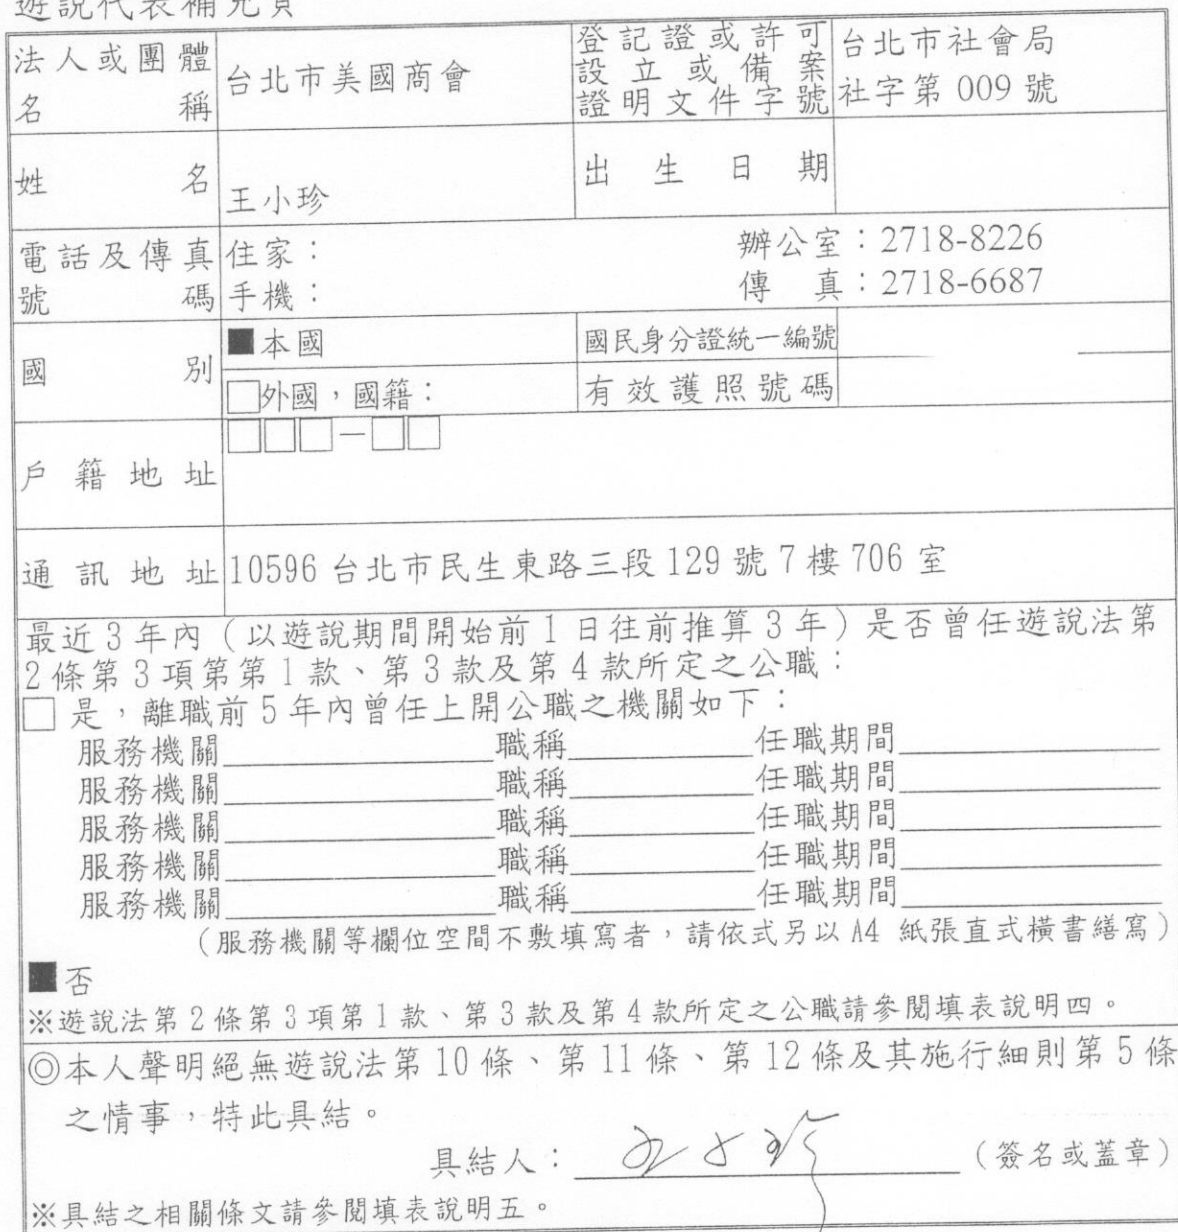 遊說代表補充頁
法人或團體名稱 台北市美國商會 登記證或許可設立或備案證明文件字號 台北市社會局社字第 009 號
姓名 王小珍 出生日期
電話及傳真號碼 住家： 辦公室：2718-8226
手機： 傳真：2718-6687
國別 ■本國 國民身分證統一編號
□外國，國籍： 有效護照號碼
戶籍地址 □□□－□□
通訊地址 10596 台北市民生東路三段 129 號 7 樓 706 室
最近 3 年內（以遊說期間開始前 1 日往前推算 3 年）是否曾任遊說法第
2 條第 3 項第第 1 款、第 3 款及第 4 款所定之公職：
□ 是，離職前 5 年內曾任上開公職之機關如下：
服務機關 職稱 任職期間
服務機關 職稱 任職期間
服務機關 職稱 任職期間
服務機關 職稱 任職期間
服務機關 職稱 任職期間
（服務機關等欄位空間不敷填寫者，請依式另以 A4 紙張直式橫書繕寫）
■否
※遊說法第 2 條第 3 項第 1 款、第 3 款及第 4 款所定之公職請參閱填表說明四。
◎本人聲明絕無遊說法第 10 條、第 11 條、第 12 條及其施行細則第 5 條
之情事，特此具結。
具結人： 王小珍 （簽名或蓋章）
※具結之相關條文請參閱填表說明五。